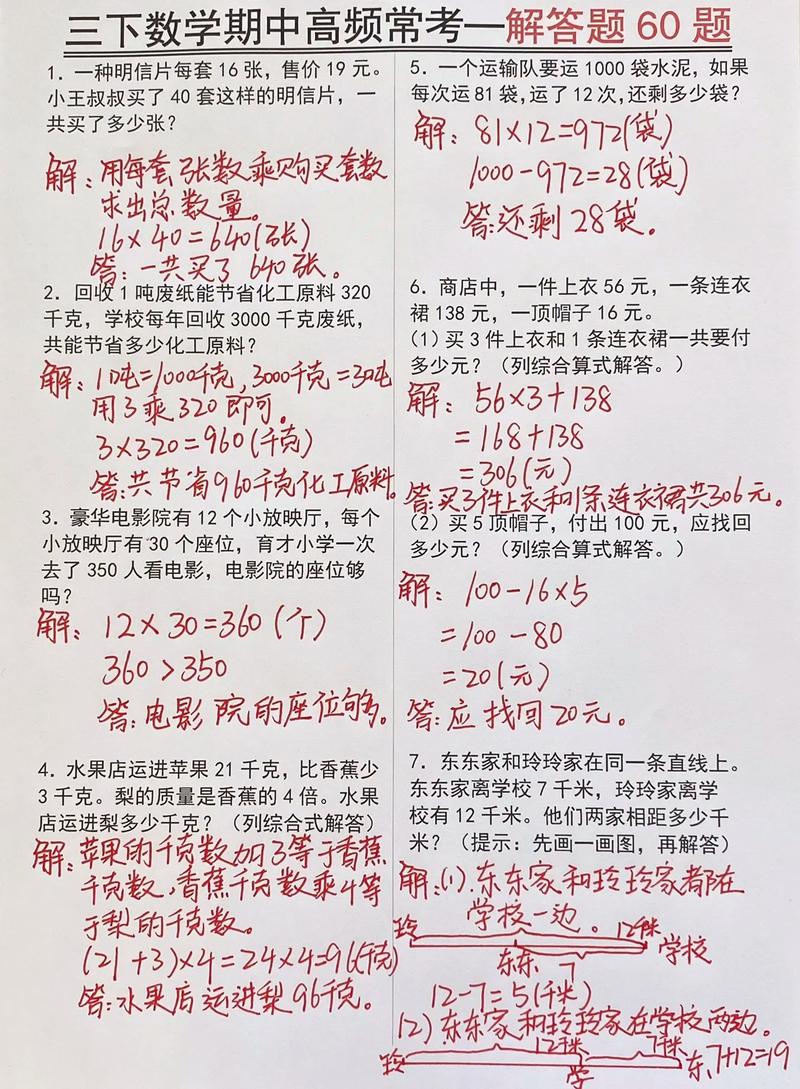 三下数学期中高频常考—解答题60题
1．一种明信片每套16张，售价19元。
小王叔叔买了40套这样的明信片，一
共买了多少张？
解：用每套张数乘购买套数
求出总数量。
16×40=640(张)
答：一共买了640张。
2．回收1吨废纸能节省化工原料320
千克，学校每年回收3000千克废纸，
共能节省多少化工原料？
解：1吨=1000千克，3000千克=3吨
用3乘320即可。
3×320=960(千克)
答：共节省960千克化工原料。
3．豪华电影院有12个小放映厅，每个
小放映厅有30个座位，育才小学一次
去了350人看电影，电影院的座位够
吗？
解：12×30=360(个)
360>350
答：电影院的座位够。
4．水果店运进苹果21千克，比香蕉少
3千克。梨的质量是香蕉的4倍。水果
店运进梨多少千克？（列综合式解答）
解：苹果的千克数加3等于香蕉
千克数，香蕉千克数乘4等
于梨的千克数。
(21+3)×4=24×4=96(千克)
答：水果店运进梨96千克。
5．一个运输队要运1000袋水泥，如果
每次运81袋，运了12次，还剩多少袋？
解：81×12=972(袋)
1000-972=28(袋)
答：还剩28袋。
6．商店中，一件上衣56元，一条连衣
裙138元，一顶帽子16元。
(1)买3件上衣和1条连衣裙一共要付
多少元？（列综合算式解答。）
解：56×3+138
=168+138
=306(元)
答：买3件上衣和1条连衣裙共306元。
(2)买5顶帽子，付出100元，应找回
多少元？（列综合算式解答。）
解：100-16×5
=100-80
=20(元)
答：应找回20元。
7．东东家和玲玲家在同一条直线上。
东东家离学校7千米，玲玲家离学
校有12千米。他们两家相距多少千
米？（提示：先画一画图，再解答）
解：(1).东东家和玲玲家都在
学校一边。
玲 12千米 学校
东东 7
12-7=5(千米)
(2)东东家和玲玲家在学校两边。
玲 12千米 学 7千米 东 7+12=19